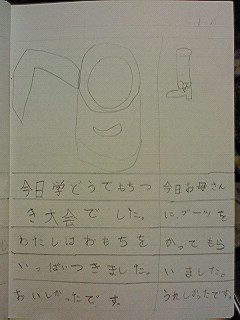 今日学どうでもちつ
き大会でした。
わたしはおもちを
いっぱいつきました。
おいしかったです。
今日お母さん
に、ブーツを
かってもら
いました。
うれしかったです。